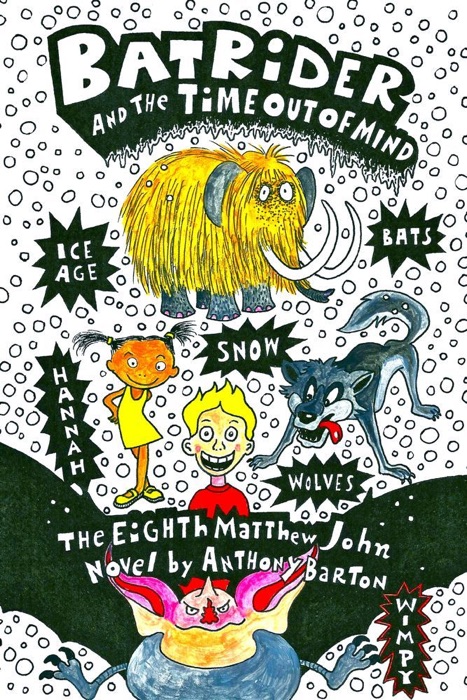 BATRIDER
AND THE TIME OUT OF MIND
ICE
AGE
BATS
SNOW
HANNAH
WOLVES
THE EIGHTH MATTHEW JOHN
NOVEL by ANTHONY BARTON
WIMPY